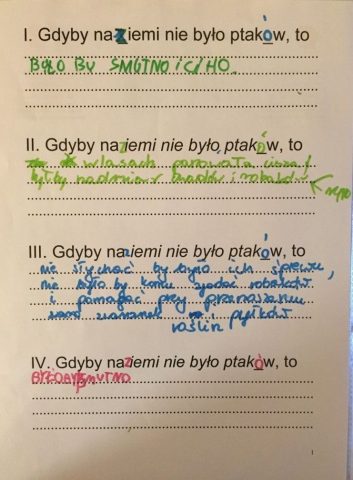 I. Gdyby na ziemi nie było ptaków, to
BYŁO BY SMUTNO I CIHO.
II. Gdyby na ziemi nie było ptaków, to
w lasach panowała cisza i
byłby nadmiar i robaków
III. Gdyby na ziemi nie było ptaków, to
nie słychać by było ich śpiewu,
nie było by komu zjadać robaków
i pomagać przy przenoszeniu
i pyłków
roślin
IV. Gdyby na ziemi nie było ptaków, to
BYŁOBY SMUTNO
1